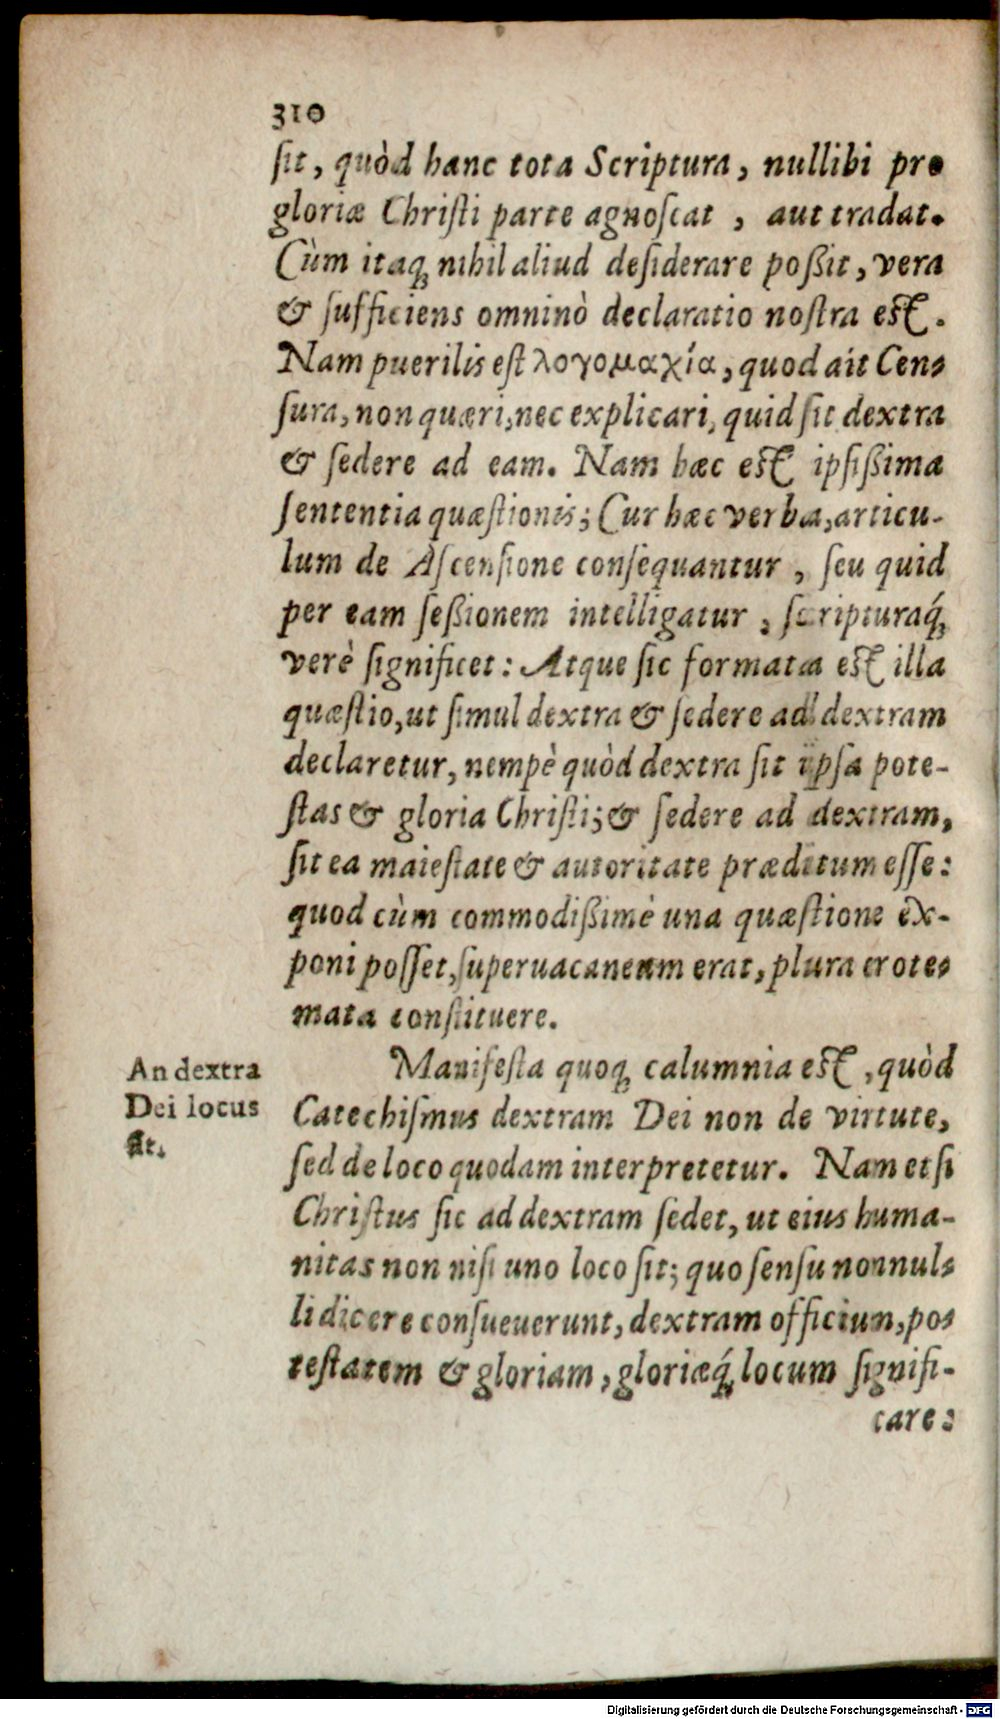 310
ſit, quòd hanc tota Scriptura, nullibi pro
gloriæ Chriſti parte agnoſcat , aut tradat.
Cùm itaq; nihil aliud deſiderare poßit, vera
& ſufficiens omninò declaratio noſtra eſt.
Nam puerilis eſt λογομαχία, quod ait Cen-
ſura, non quæri, nec explicari, quid ſit dextra
& ſedere ad eam. Nam hæc eſt ipſißima
ſententia quæſtionis; Cur hæc verba, articu-
lum de Aſcenſione conſequantur , ſeu quid
per eam ſeßionem intelligatur , ſcripturaq́;
verè ſignificet: Atque ſic formata eſt illa
quæſtio, ut ſimul dextra & ſedere ad dextram
declaretur, nempè quòd dextra ſit ipſa pote-
ſtas & gloria Chriſti; & ſedere ad dextram,
ſit ea maieſtate & autoritate præditum eſſe:
quod cùm commodißimè una quæſtione ex-
poni poſſet, ſuperuacaneum erat, plura erote-
mata conſtituere.
An dextra
Dei locus
ſit.
Manifeſta quoq; calumnia eſt, quòd
Catechiſmus dextram Dei non de virtute,
ſed de loco quodam interpretetur. Nam etſi
Chriſtus ſic ad dextram ſedet, ut eius huma-
nitas non niſi uno loco ſit; quo ſenſu nonnul-
li dicere conſueuerunt, dextram officium, po-
teſtatem & gloriam, gloriæq́; locum ſignifi-
care:
Digitalisierung gefördert durch die Deutsche Forschungsgemeinschaft - DFG